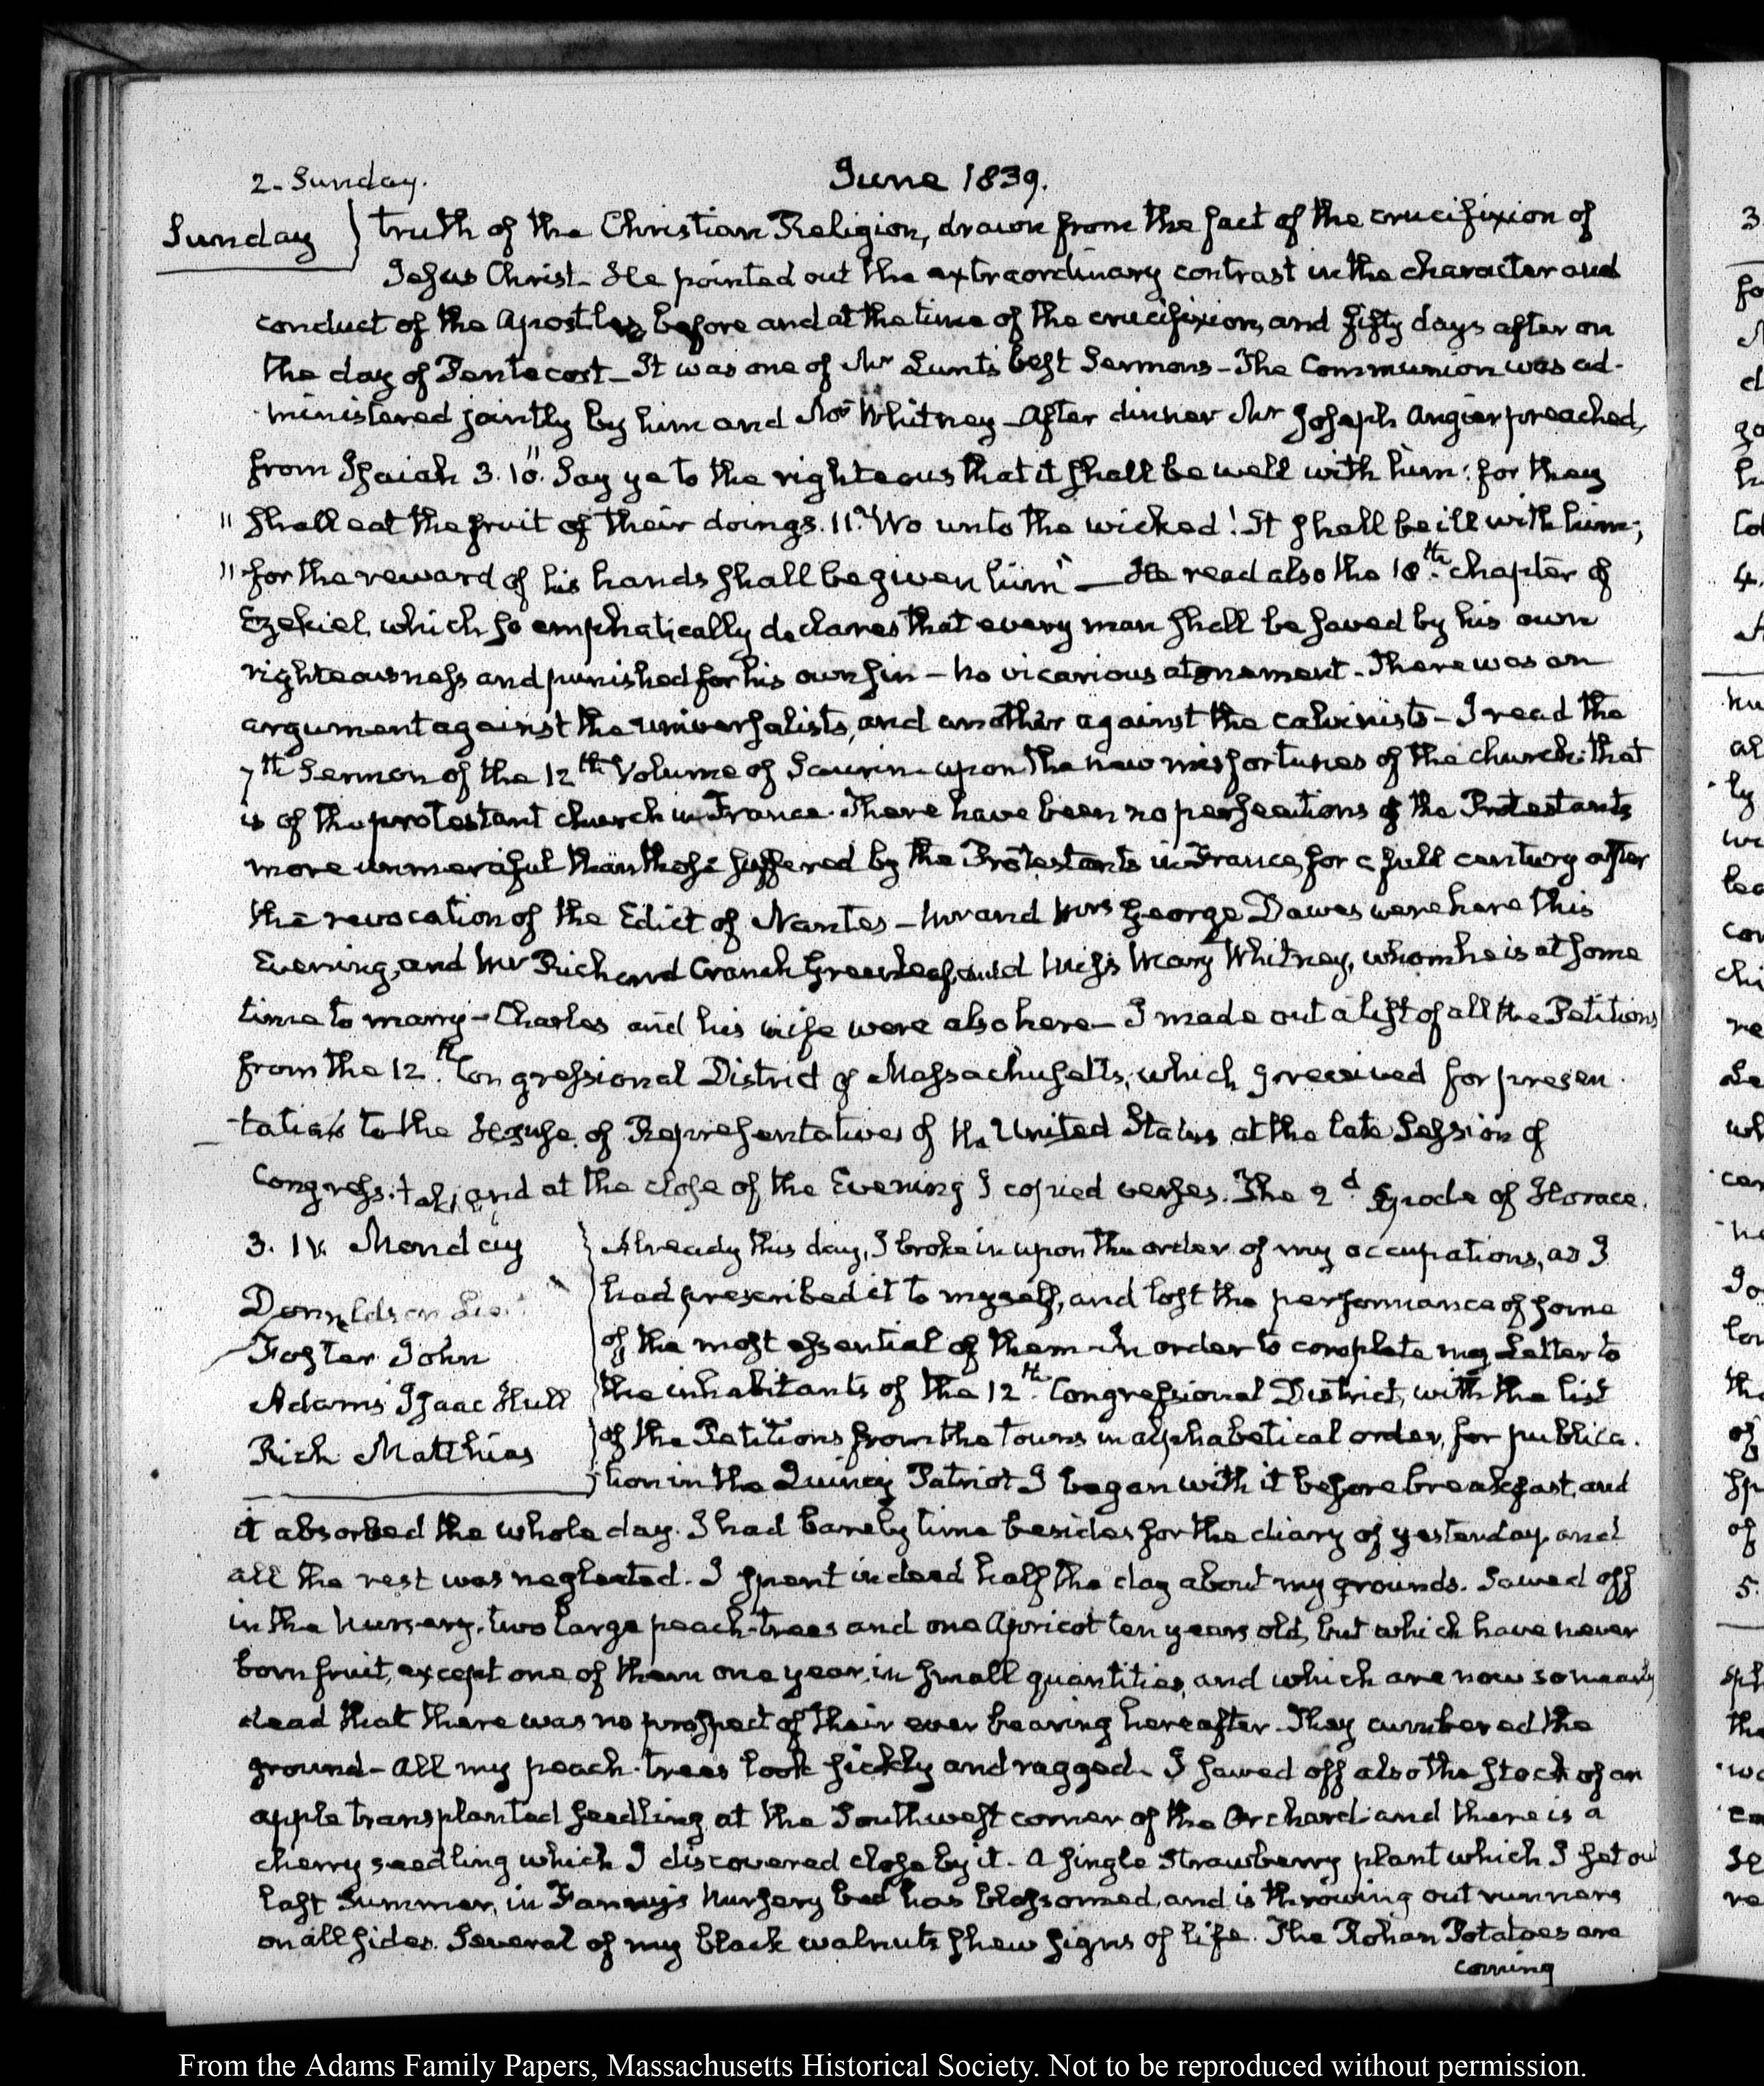 2. Sunday.
June 1839.
Sunday
truth of the Christian Religion, drawn from the fact of the crucifixion of
Jesus Christ. He pointed out the extraordinary contrast in the character and
conduct of the Apostles before and at the time of the crucifixion, and fifty days after on
the day of Pentecost. It was one of Mr Lunt's best Sermons. The Communion was ad-
ministered jointly by him and Mr Whitney. After dinner Mr Joseph Angier preached,
from Isaiah 3. 10. "Say ye to the righteous that it shall be well with him: for they
" shall eat the fruit of their doings. 11. Wo unto the wicked! It shall be ill with him;
" for the reward of his hands shall be given him" — He read also the 18th. chapter of
Ezekiel, which so emphatically declares that every man shall be saved by his own
righteousness and punished for his own sin – no vicarious atonement. There was an
argument against the universalists, and another against the calvinists – I read the
7th Sermon of the 12th Volume of Saurin upon the new misfortunes of the church: that
is of the protestant church in France. There have been no persecutions of the Protestants
more unmerciful than those suffered by the Protestants in France, for a full century after
the revocation of the Edict of Nantes – Mr and Mrs George Dawes were here this
Evening, and Mr Richard Cranch Greenleaf, and Miss Mary Whitney, whom he is at some
time to marry – Charles and his wife were also here – I made out a list of all the Petitions
from the 12th. Congressional District of Massachusetts, which I received for presen
tation to the House of Representatives of the United States, at the late Session of
Congress: and at the close of the Evening I copied verses. The 2d Epode of Horace.
3. IV. Monday
Donaldson
Foster John
Adams Isaac Hull
Rich Matthias
Already this day, I broke in upon the order of my occupations, as I
had prescribed it to myself, and lost the performance of some
of the most essential of them – In order to complete my Letter to
the inhabitants of the 12th. Congressional District, with the list
of the Petitions from the Towns in alphabetical order, for publica.
tion in the Quincy Patriot I began with it before breakfast, and
it absorbed the whole day. I had barely time besides for the diary of yesterday, and
all the rest was neglected. I spent indeed half the day about my grounds. Sawed off
in the Nursery, two large peach-trees and one Apricot ten years old, but which have never
born fruit, except one of them one year, in small quantities, and which are now so nearly
dead that there was no prospect of their ever bearing hereafter. They cumbered the
ground – All my peach-trees look sickly and ragged. I sawed off also the stock of an
apple transplanted seedling at the Southwest corner of the Orchard: and there is a
cherry seedling which I discovered close by it. A single Strawberry plant which I set out
last Summer, in Fanny's Nursery bed has blossomed, and is throwing out runners
on all sides. Several of my black walnuts shew signs of life. The Rohan Potatoes are
coming
From the Adams Family Papers, Massachusetts Historical Society. Not to be reproduced without permission.